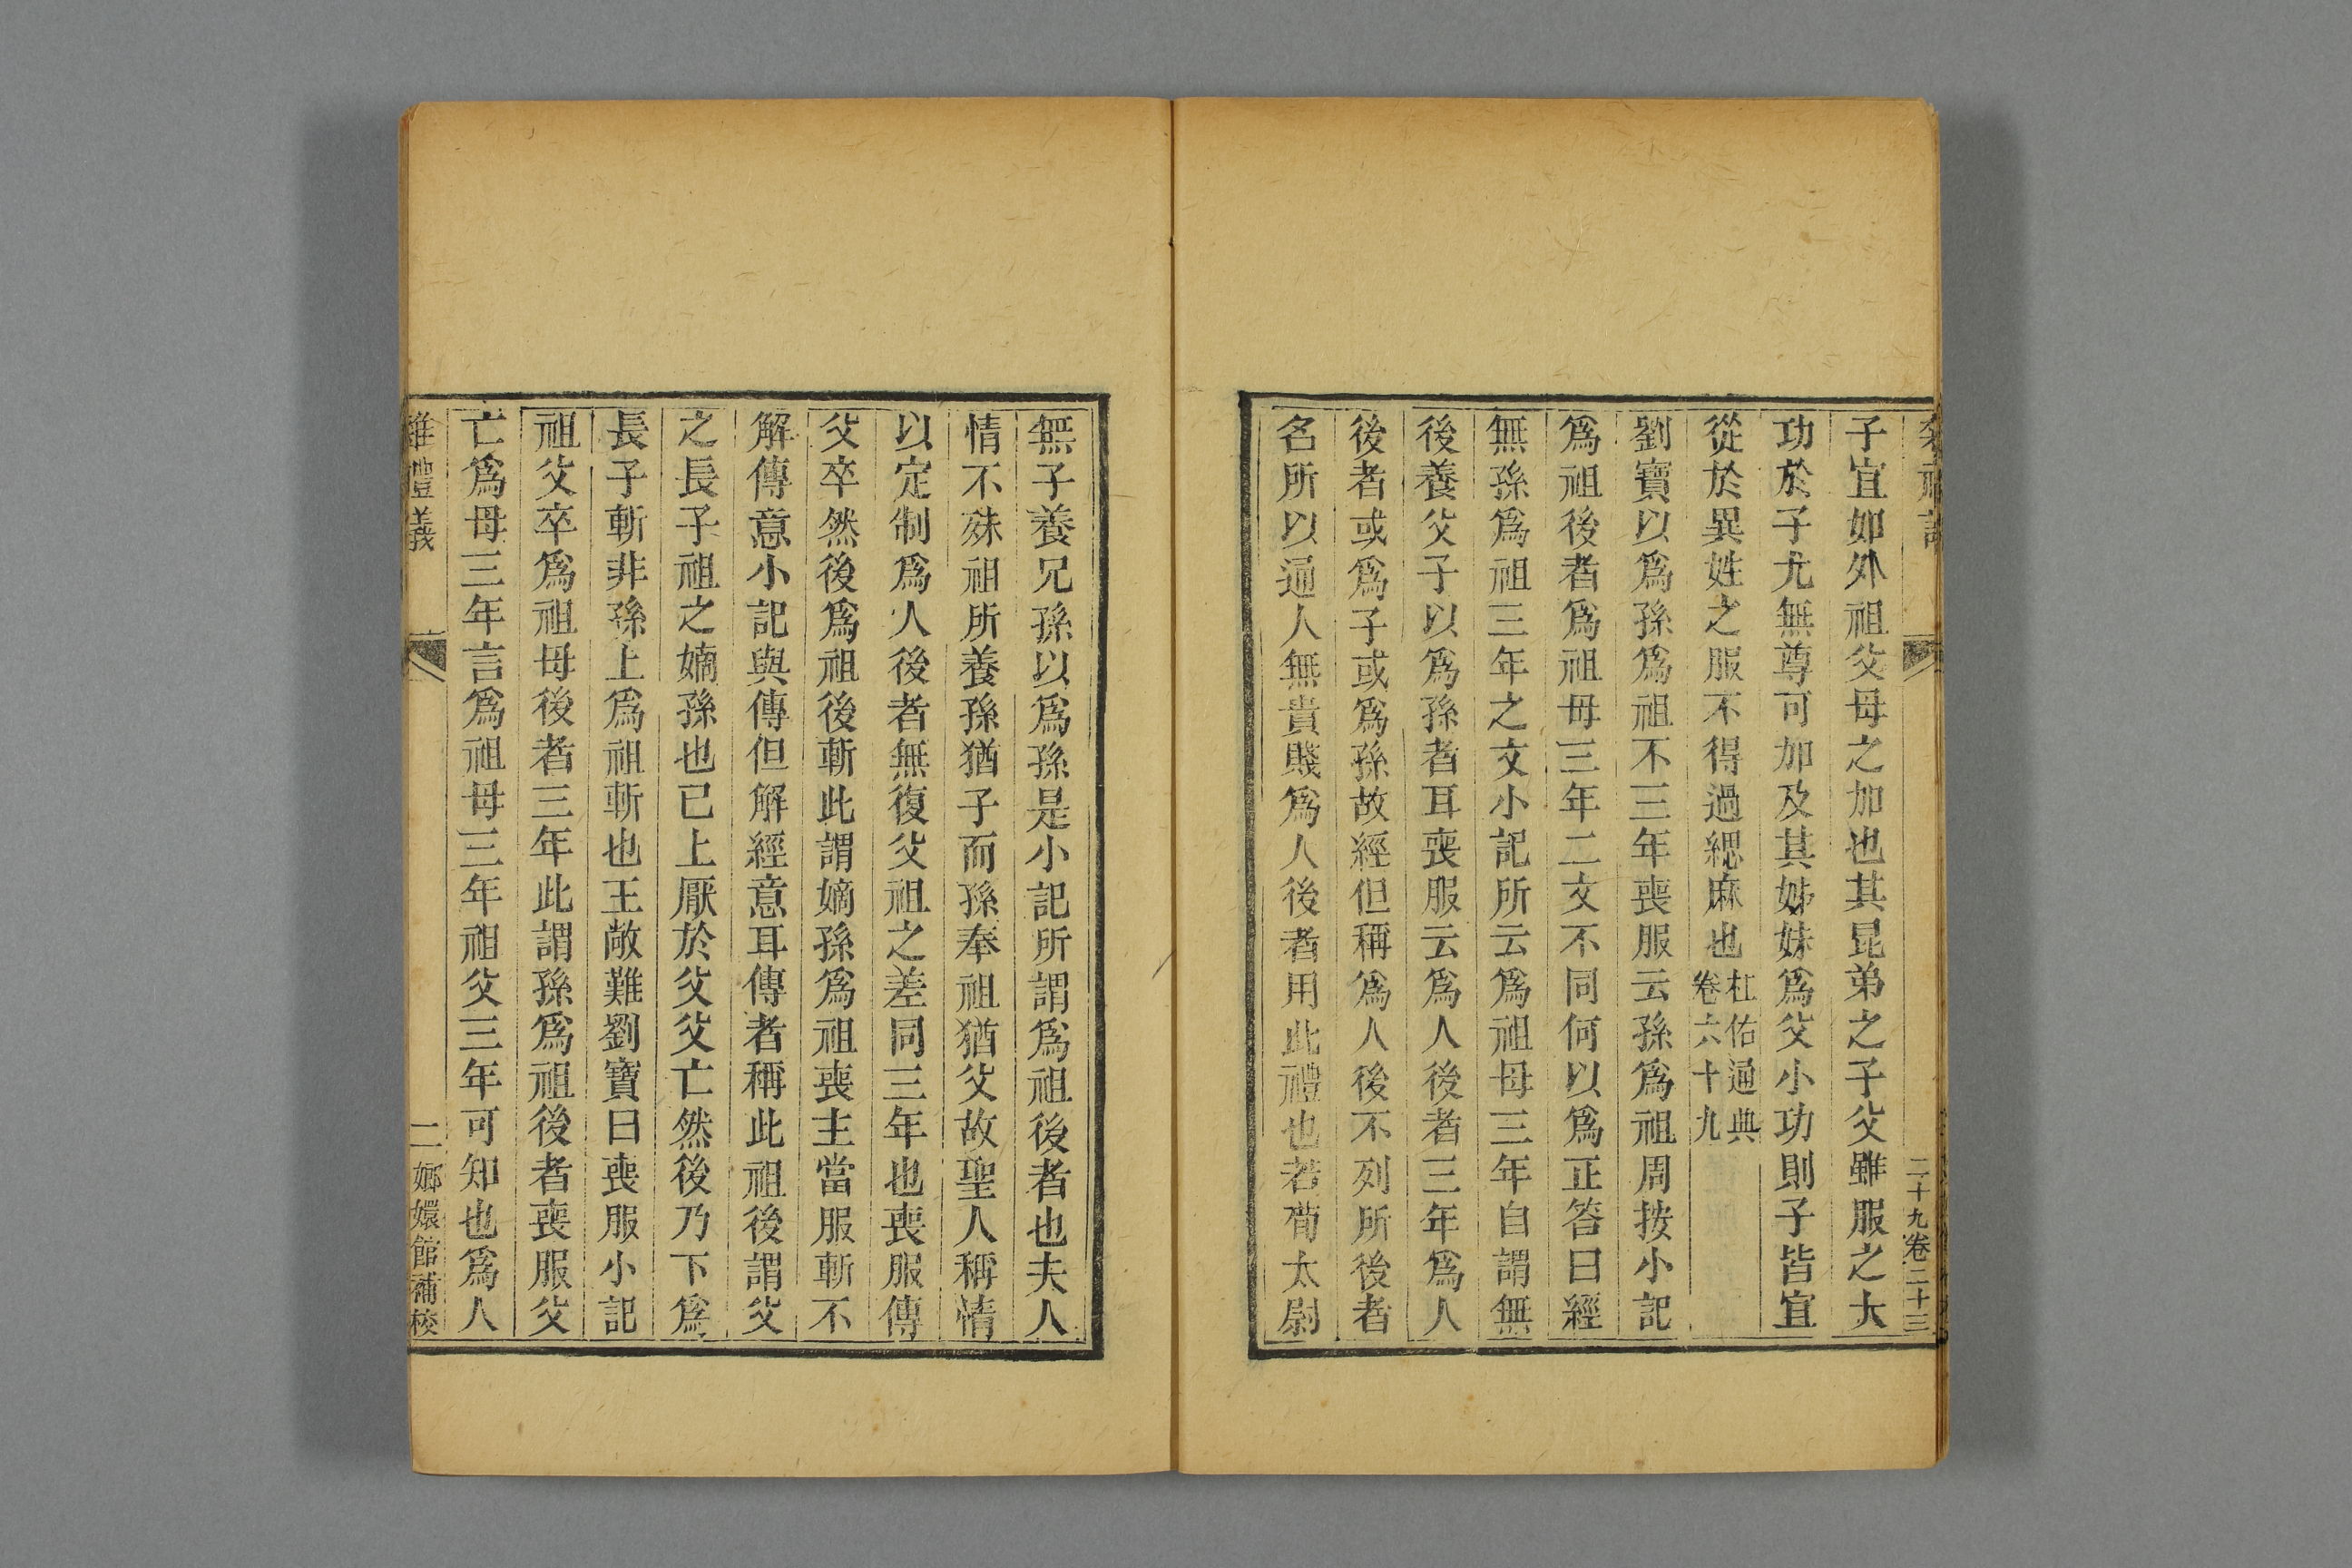 二十九卷二十三
子宜如外祖父母之加也其昆弟之子父雖服之大
功於子尤無尊可加及其姊妹爲父小功則子皆宜
從於異姓之服不得過緦麻也杜佑通典卷六十九
劉寶以爲孫爲祖不三年喪服云孫爲祖周按小記
爲祖後者爲祖母三年二文不同何以爲正答曰經
無孫爲祖三年之文小記所云爲祖母三年自謂無
後養父子以爲孫者耳喪服云爲人後者三年爲人
後者或爲子或爲孫故經但稱爲人後不列所後者
名所以通人無貴賤爲人後者用此禮也若荀太尉
無子養兄孫以爲孫是小記所謂爲祖後者也夫人
情不殊祖所養孫猶子而孫奉祖猶父故聖人稱情
以定制爲人後者無復父祖之差同三年也喪服傳
父卒然後爲祖後斬此謂嫡孫爲祖喪主當服斬不
解傳意小記與傳但解經意耳傳者稱此祖後謂父
之長子祖之嫡孫也已上厭於父父亡然後乃下爲
長子斬非孫上爲祖斬也王敞難劉寶曰喪服小記
祖父卒爲祖母後者三年此謂孫爲祖後者喪服父
亡爲母三年言爲祖母三年祖父三年可知也爲人
雜禮義 二 嫏嬛館補校